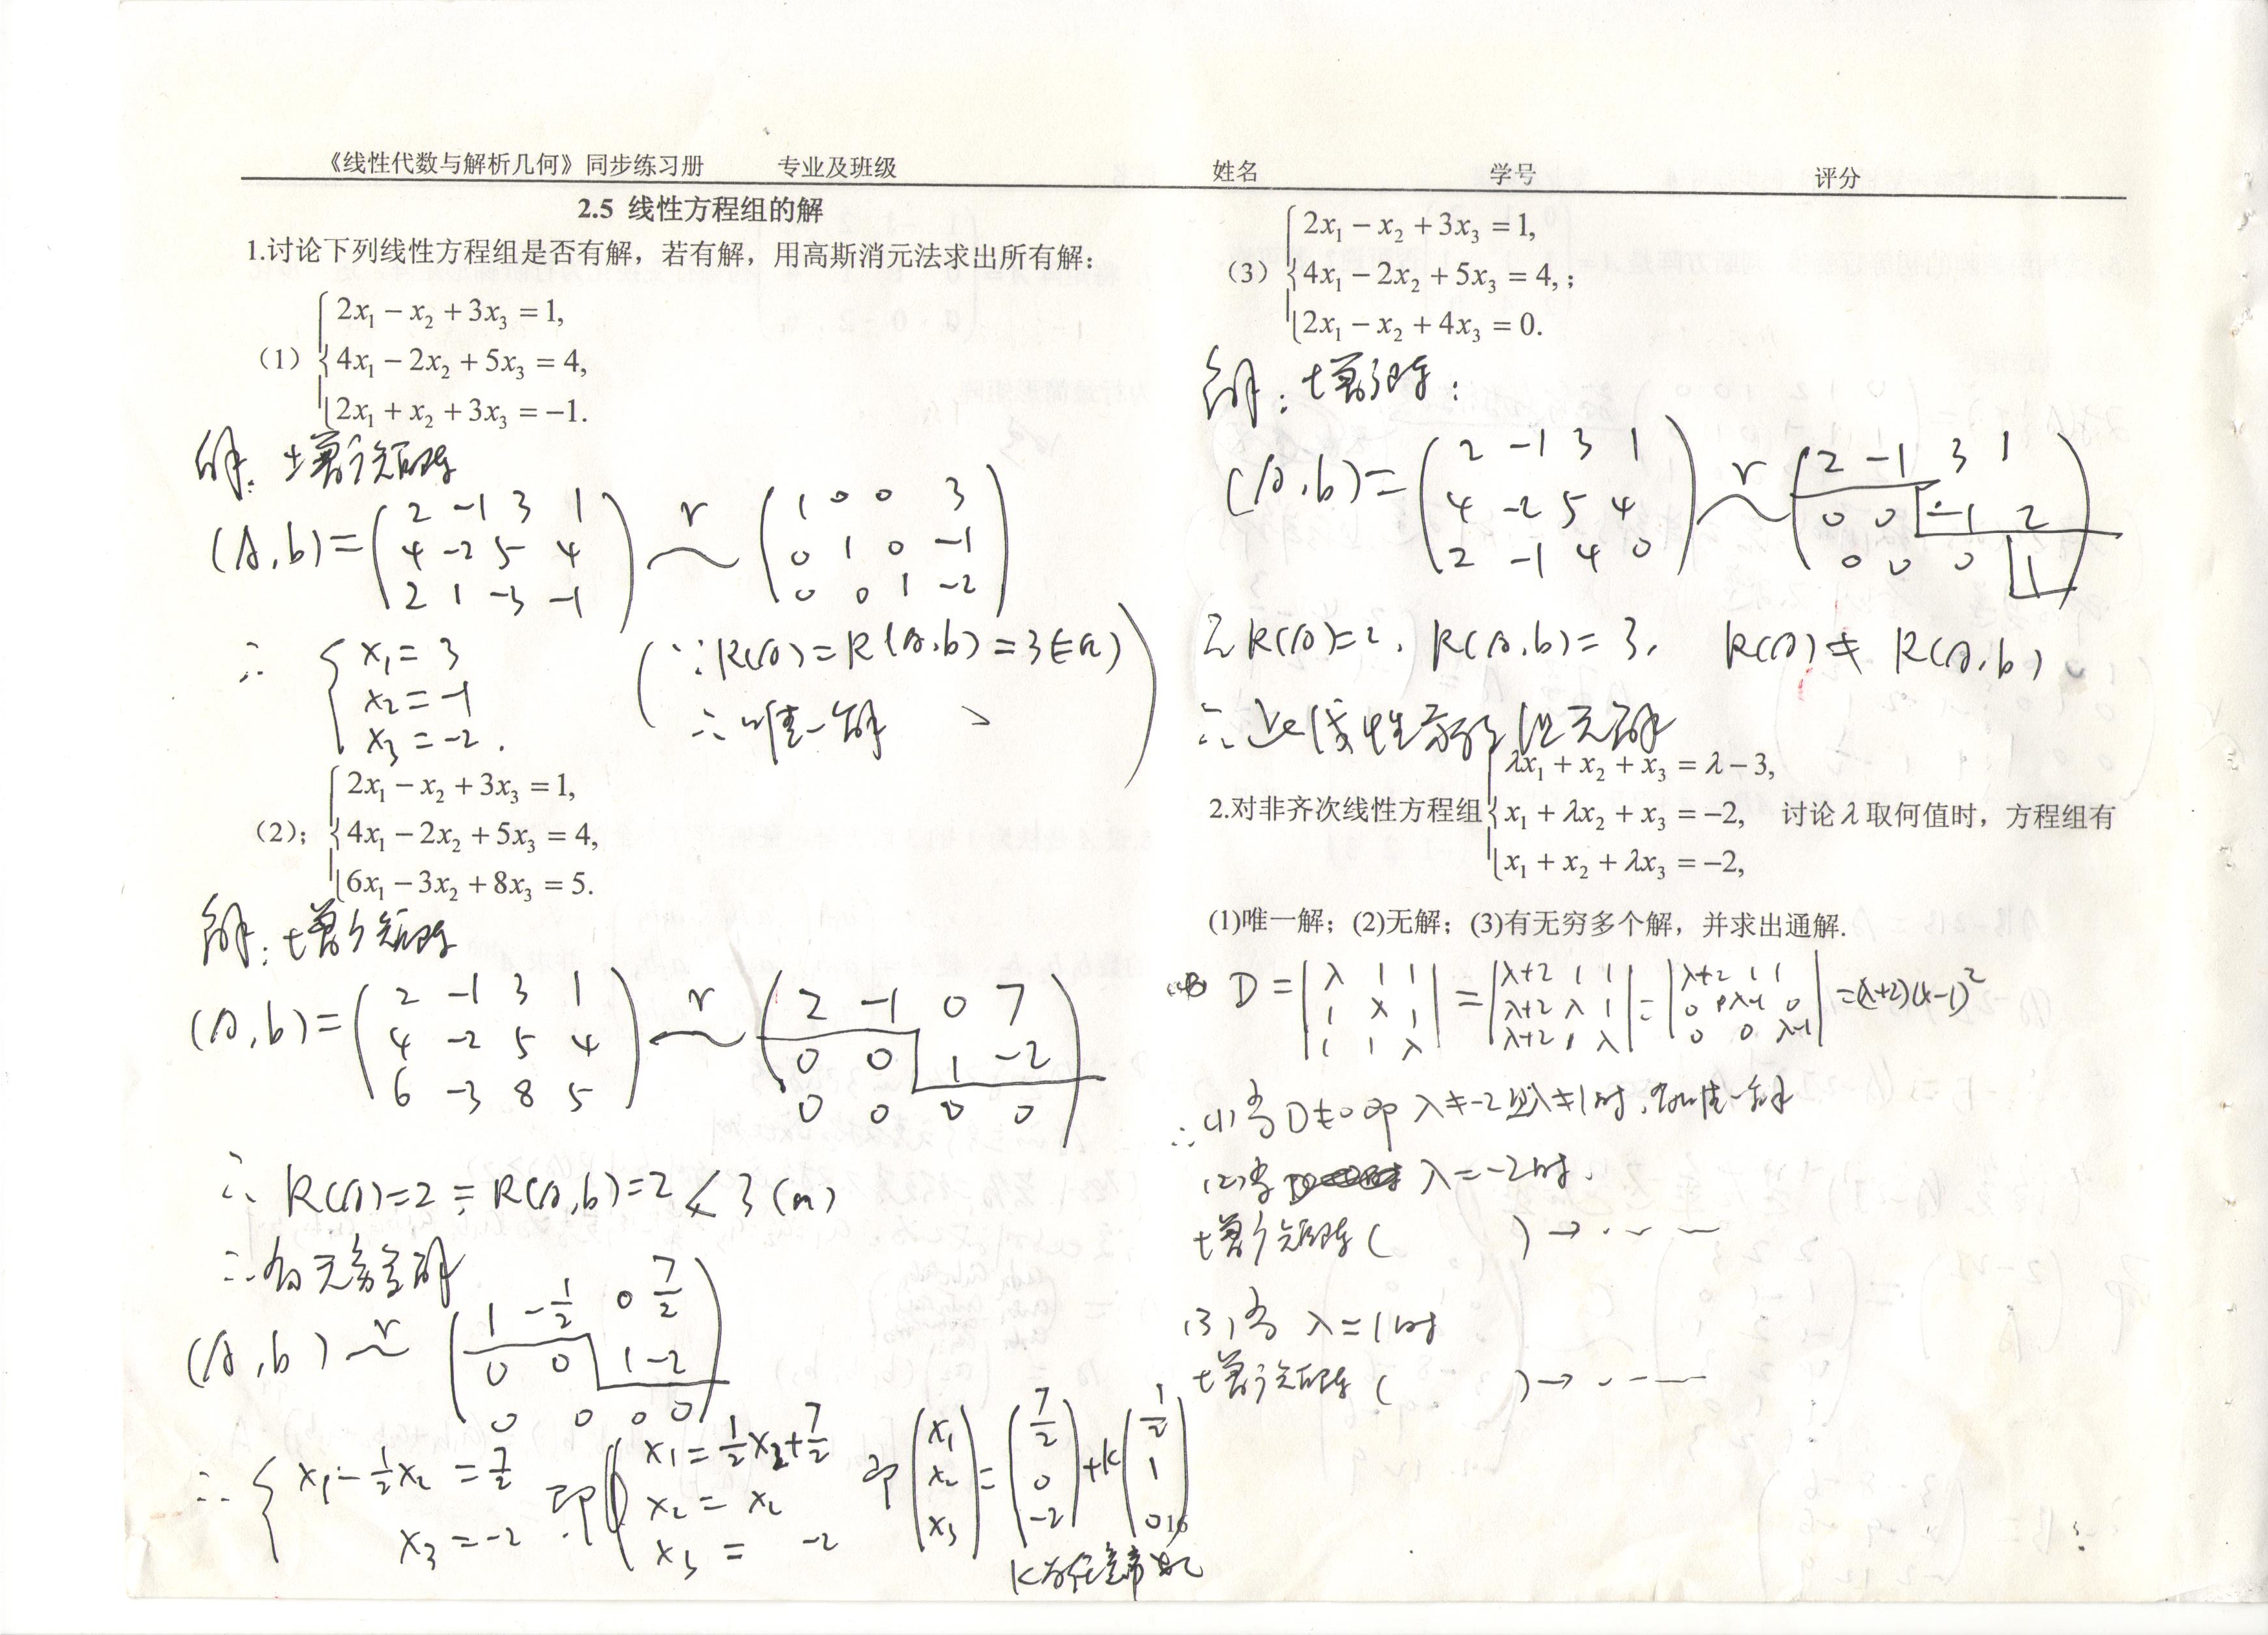 《线性代数与解析几何》同步练习册 专业及班级 姓名 学号 评分
2.5 线性方程组的解
1.讨论下列线性方程组是否有解，若有解，用高斯消元法求出所有解：
(1) { 2x₁ − x₂ + 3x₃ = 1,
4x₁ − 2x₂ + 5x₃ = 4,
2x₁ + x₂ + 3x₃ = −1.
解：增广矩阵
(A,b) = ( 2 −1 3 1
4 −2 5 4
2 1 −3 −1 ) r ~ ( 1 0 0 3
0 1 0 −1
0 0 1 −2 )
∴ { x₁ = 3
x₂ = −1
x₃ = −2 .
( ∵ R(A) = R(A,b) = 3 (=n)
∴ 唯一解 )
(2); { 2x₁ − x₂ + 3x₃ = 1,
4x₁ − 2x₂ + 5x₃ = 4,
6x₁ − 3x₂ + 8x₃ = 5.
解：增广矩阵
(A,b) = ( 2 −1 3 1
4 −2 5 4
6 −3 8 5 ) r ~ ( 2 −1 0 7
0 0 1 −2
0 0 0 0 )
∴ R(A)=2 = R(A,b)=2 < 3 (n)
∴ 有无穷多解
(A,b) r ~ ( 1 −1/2 0 7/2
0 0 1 −2
0 0 0 0 )
∴ { x₁ − 1/2 x₂ = 7/2
x₃ = −2
即 { x₁ = 1/2 x₂ + 7/2
x₂ = x₂
x₃ = −2
即 ( x₁
x₂
x₃ ) = ( 7/2
0
−2 ) + k ( 1/2
1
0 )
k为任意常数
16
(3) { 2x₁ − x₂ + 3x₃ = 1,
4x₁ − 2x₂ + 5x₃ = 4, ;
2x₁ − x₂ + 4x₃ = 0.
解：增广阵：
(A,b) = ( 2 −1 3 1
4 −2 5 4
2 −1 4 0 ) r ~ ( 2 −1 3 1
0 0 −1 2
0 0 0 1 )
∴ R(A)=2, R(A,b)=3, R(A) ≠ R(A,b)
∴ 此线性方程组无解
2.对非齐次线性方程组 { λx₁ + x₂ + x₃ = λ − 3,
x₁ + λx₂ + x₃ = −2,
x₁ + x₂ + λx₃ = −2,
讨论λ取何值时，方程组有
(1)唯一解；(2)无解；(3)有无穷多个解，并求出通解.
D = | λ 1 1
1 λ 1
1 1 λ | = | λ+2 1 1
λ+2 λ 1
λ+2 1 λ | = | λ+2 1 1
0 λ−1 0
0 0 λ−1 | = (λ+2)(λ−1)²
∴ (1) 当D≠0即 λ≠−2且λ≠1时, 有唯一解
(2) 当 λ=−2时.
增广矩阵 ( ) → · — —
(3) 当 λ=1时
增广矩阵 ( ) → · – — —